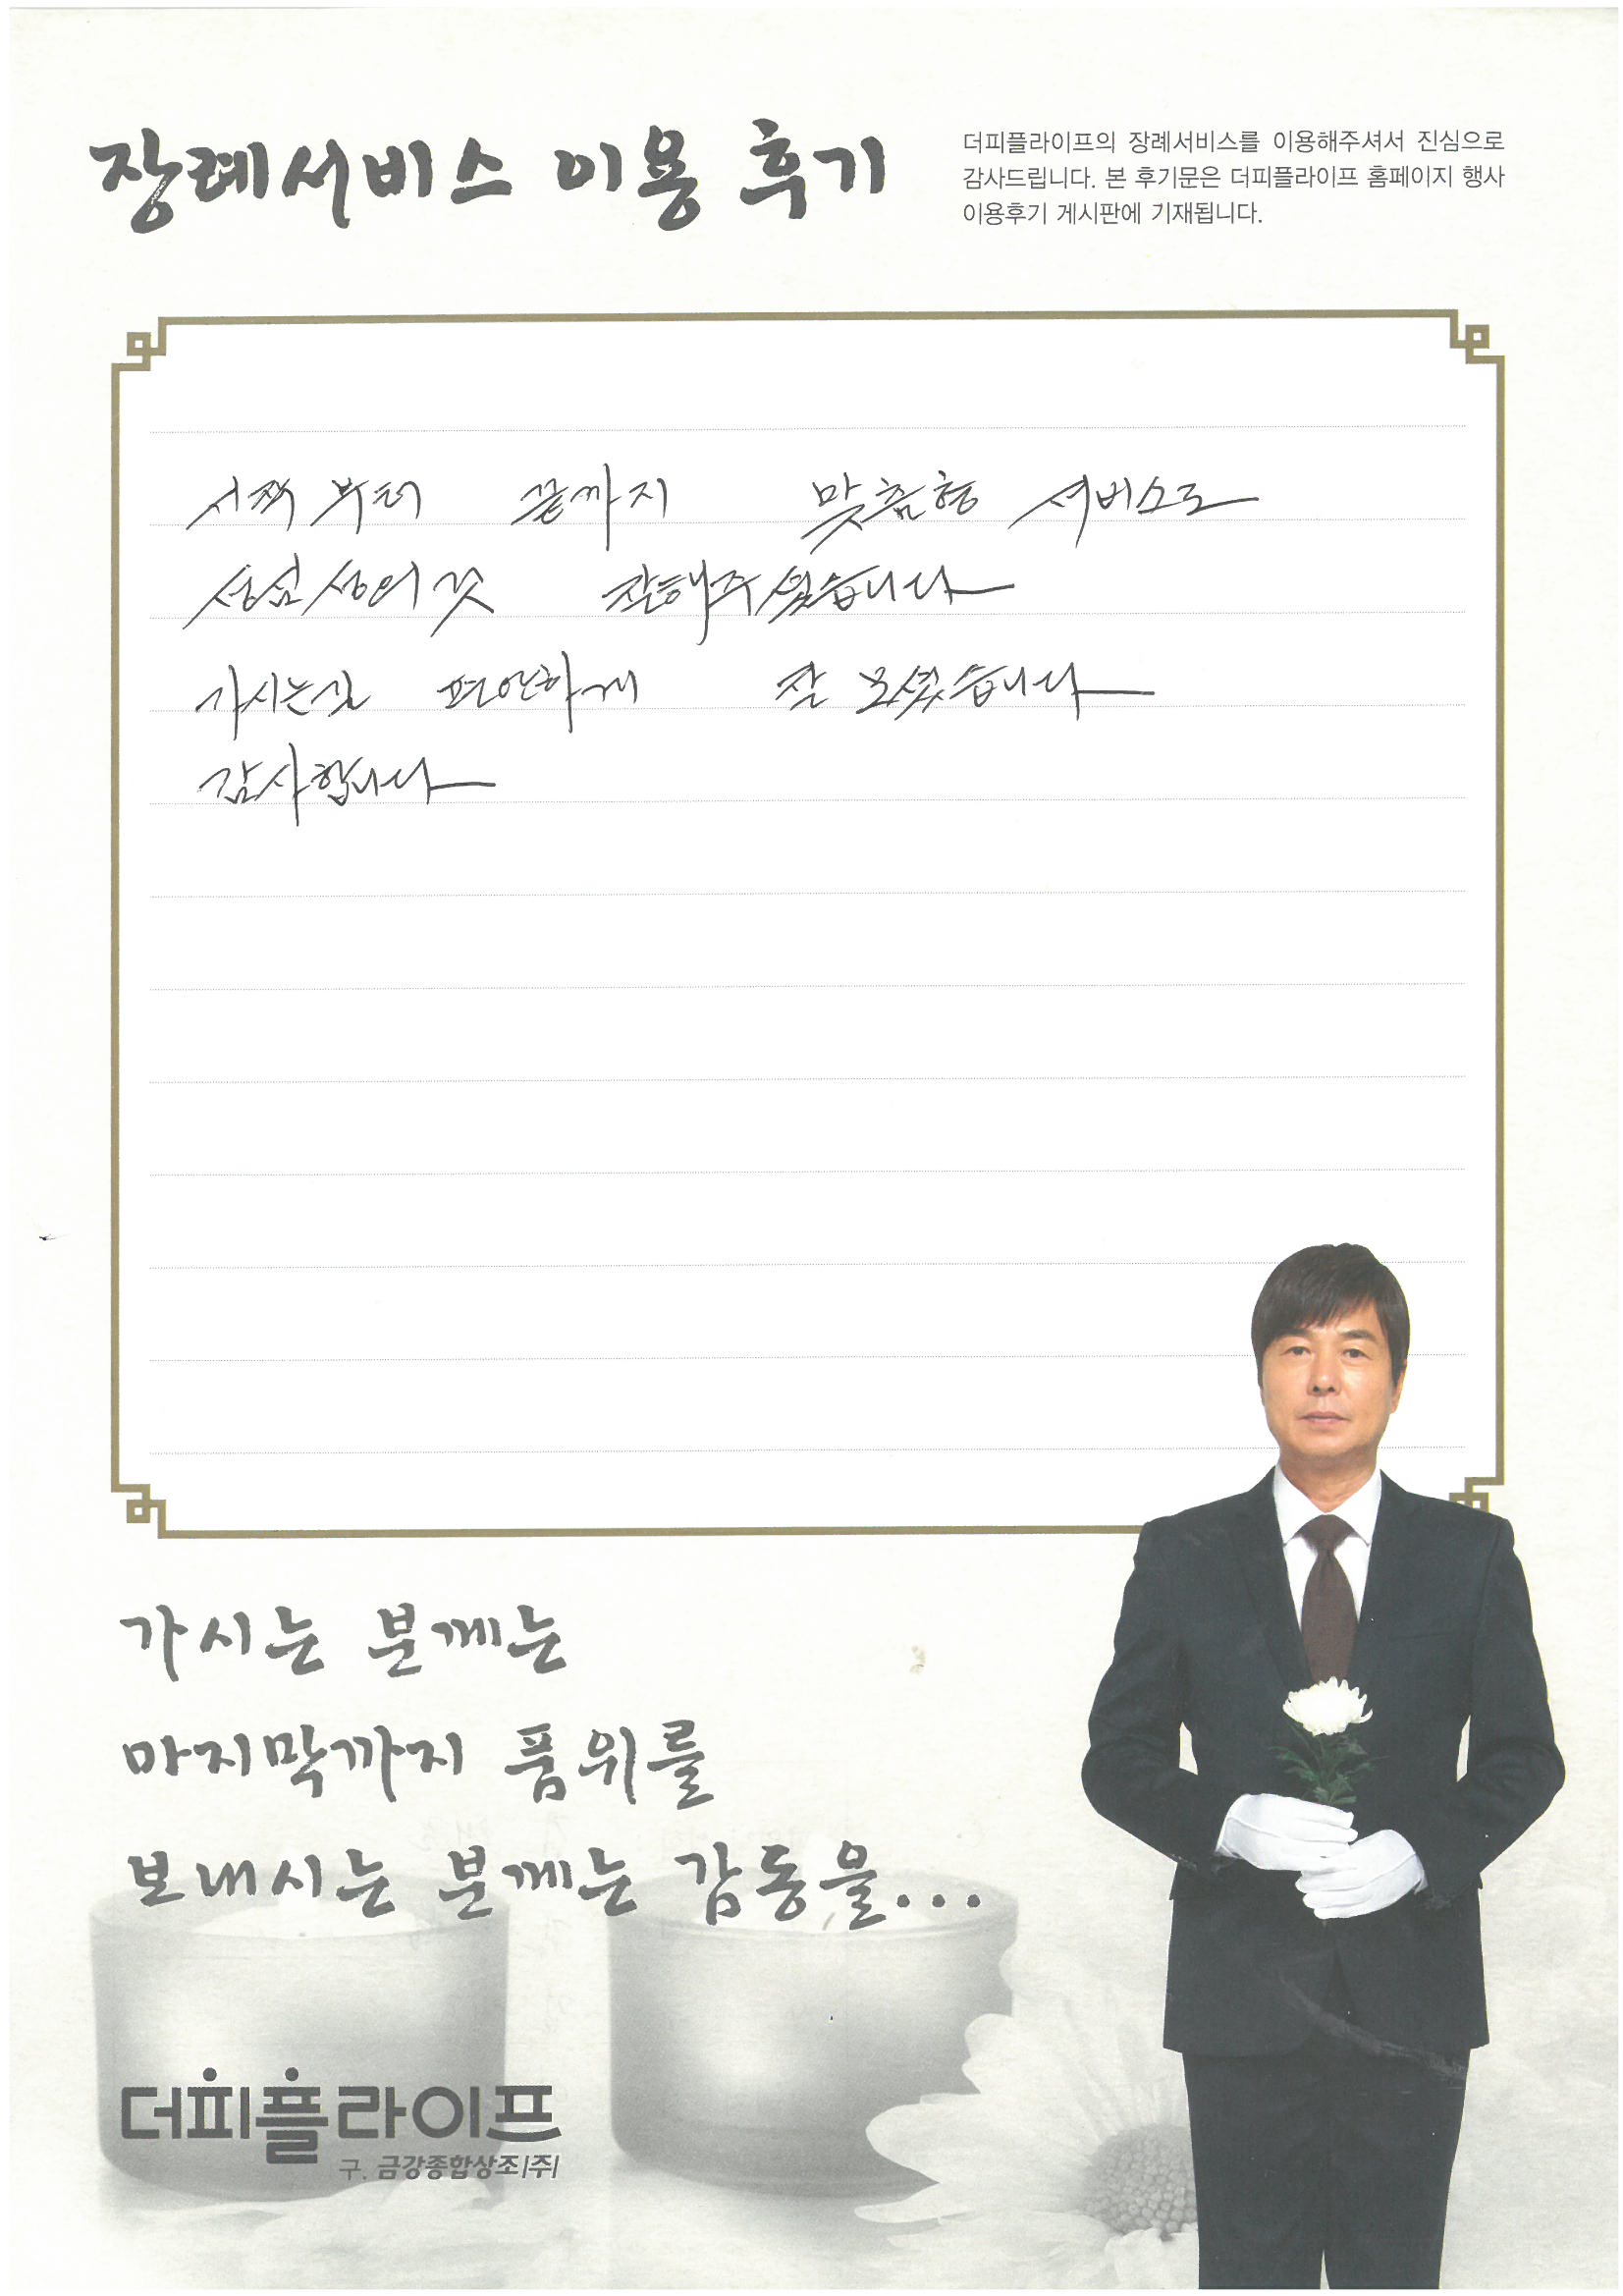 장례서비스 이용 후기
더피플라이프의 장례서비스를 이용해주셔서 진심으로
감사드립니다. 본 후기문은 더피플라이프 홈페이지 행사
이용후기 게시판에 기재됩니다.
시작부터 끝까지 맞춤형 서비스로
성심성의것 잘해주셨습니다
가시는길 편안하게 잘 모셨습니다
감사합니다
가시는 분께는
마지막까지 품위를
보내시는 분께는 감동을...
더피플라이프
구. 금강종합상조(주)